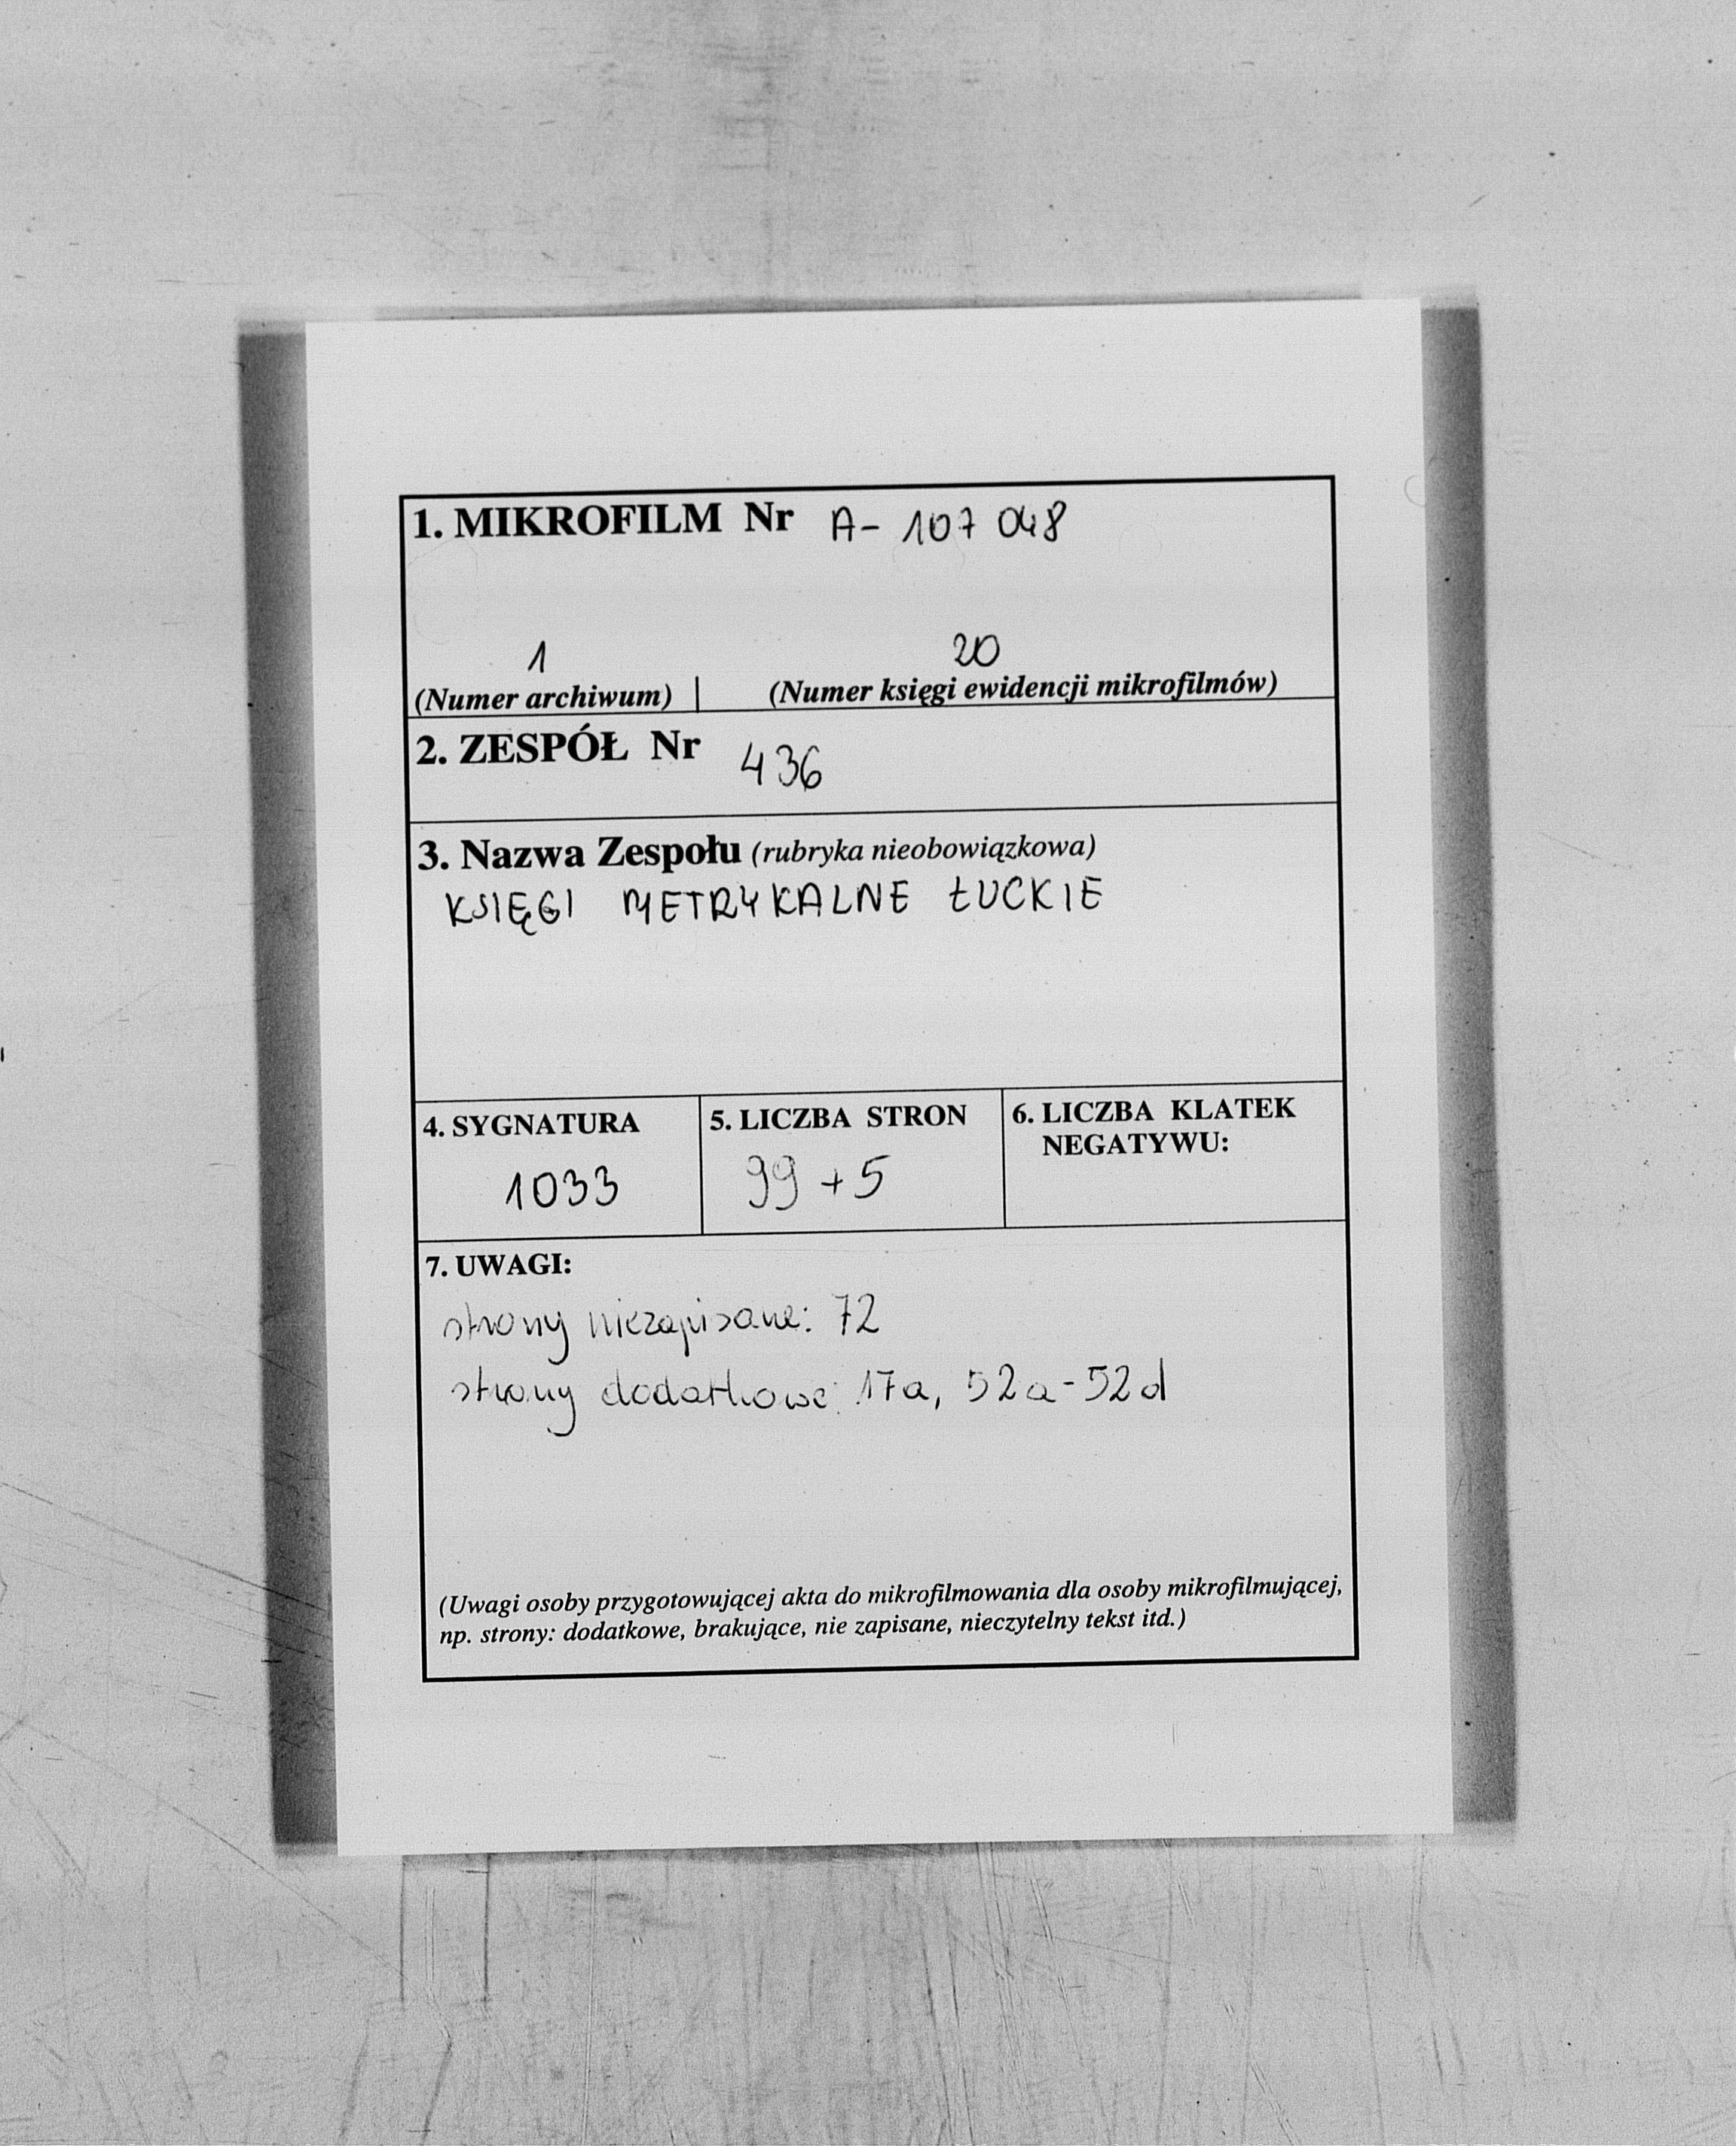 1. MIKROFILM Nr A- 107 048
1 20
(Numer archiwum) | (Numer księgi ewidencji mikrofilmów)
2. ZESPÓŁ Nr 436
3. Nazwa Zespołu (rubryka nieobowiązkowa)
KSIĘGI METRYKALNE ŁUCKIE
4. SYGNATURA
1033
5. LICZBA STRON
99 + 5
6. LICZBA KLATEK
NEGATYWU:
7. UWAGI:
strony niezapisane: 72
strony dodatkowe: 17a, 52a-52d
(Uwagi osoby przygotowującej akta do mikrofilmowania dla osoby mikrofilmującej,
np. strony: dodatkowe, brakujące, nie zapisane, nieczytelny tekst itd.)